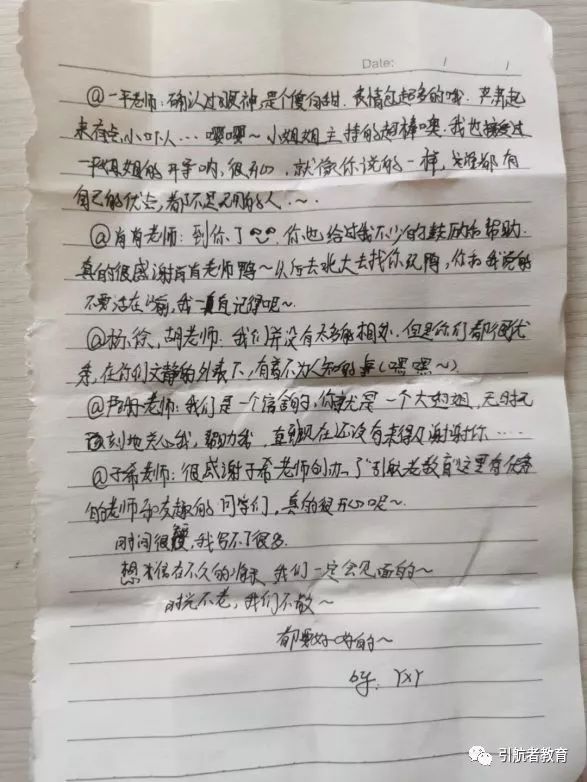 Date: / /
@一平老师:确认过眼神,是个傻白甜.表情包超多的哦.严肃起
来有点小吓人...嘤嘤~小姐姐主持的超棒噢.我也接受过
一平姐姐的开导呐,很开心,就像你说的一样,谁都有
自己的优点,都不是无用的人.~.
@肖肖老师:到你了 你也给过我不少的鼓励和帮助.
真的很感谢肖肖老师鸭~以后去北大去找你玩鸭,你和我说的
不要活在当前,我一直记得呢~
@杨、徐、胡老师:我们并没有太多的相处.但是你们都很优
秀,在你们文静的外表下,有着不为人知的(嘿嘿~)
@老师:我们是一个宿舍的,你就是一个大姐姐,无时无
刻地关心我,帮助我,直到现在还没有来得及谢谢你.....
@于希老师:很感谢于希老师创办了“引航者教育”这里有优秀
的老师和有趣的同学们,真的很开心呢~
时间很赶,我写不了很多.
想相信在不久的将来,我们一定会见面的~
时光不老,我们不散~
都要好好的~
by: YXY
引航者教育